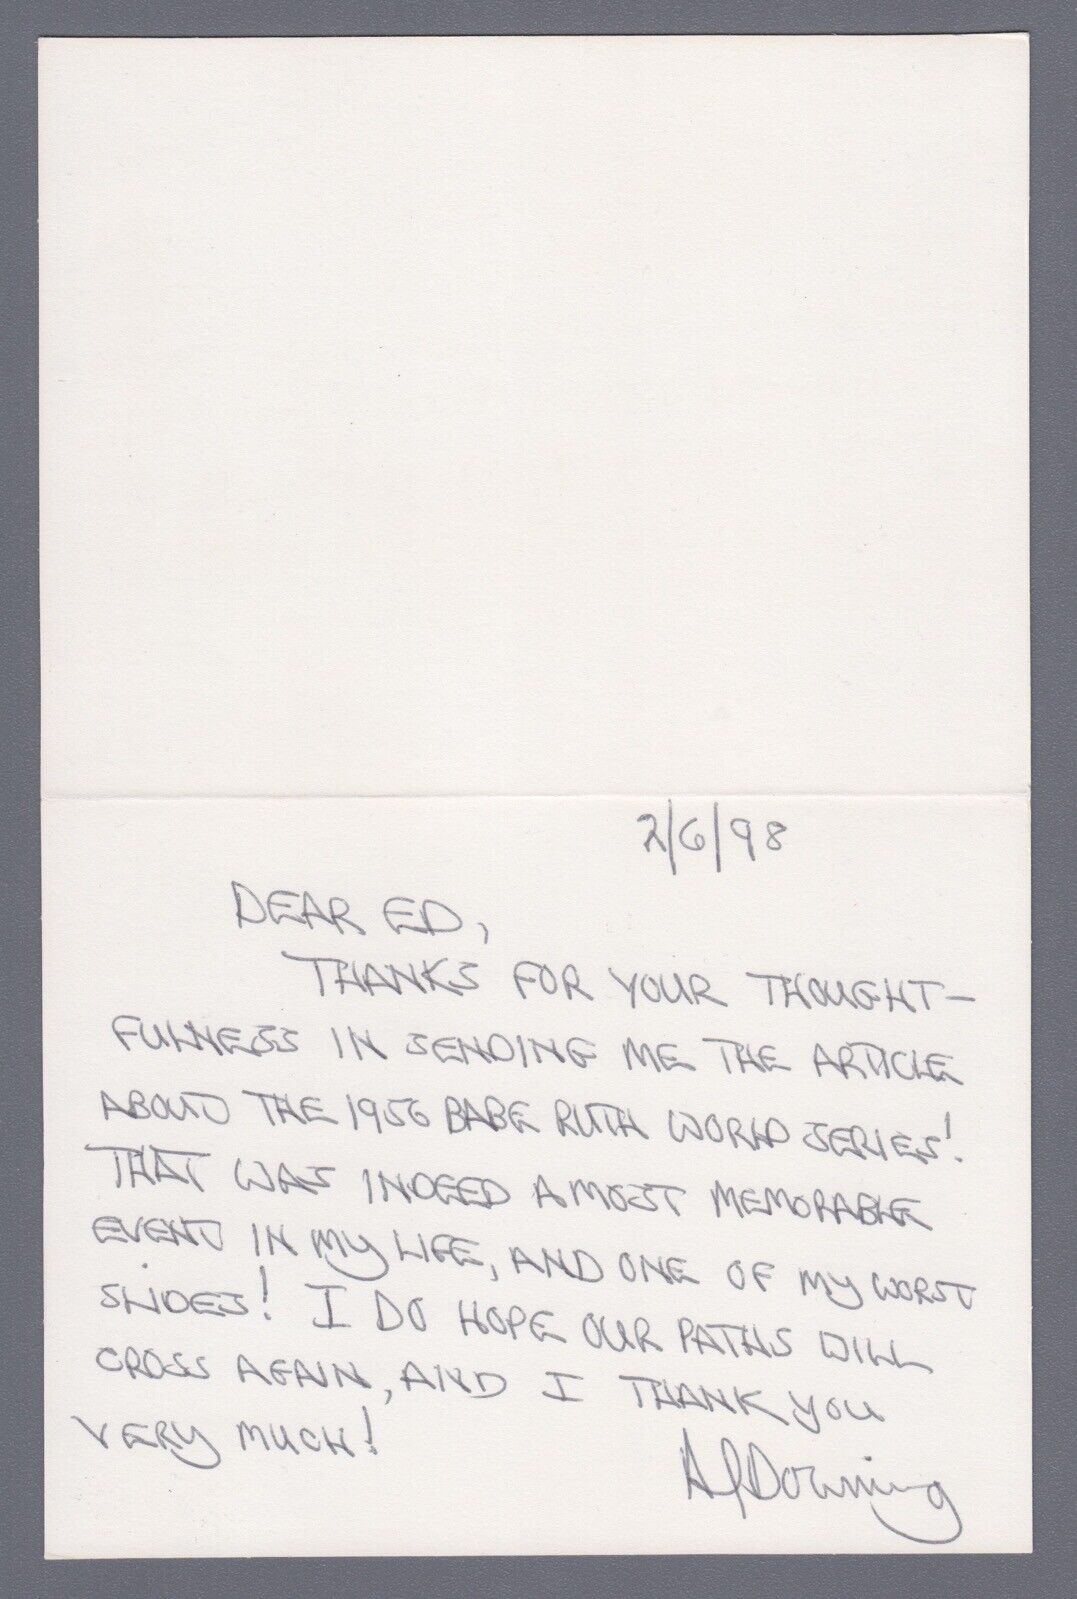 2/6/98
DEAR ED,
THANKS FOR YOUR THOUGHT-
FULNESS IN SENDING ME THE ARTICLE
ABOUT THE 1956 BABE RUTH WORLD SERIES!
THAT WAS INDEED A MOST MEMORABLE
EVENT IN MY LIFE, AND ONE OF MY WORST
SLIDES! I DO HOPE OUR PATHS WILL
CROSS AGAIN, AND I THANK YOU
VERY MUCH!
Al Downing